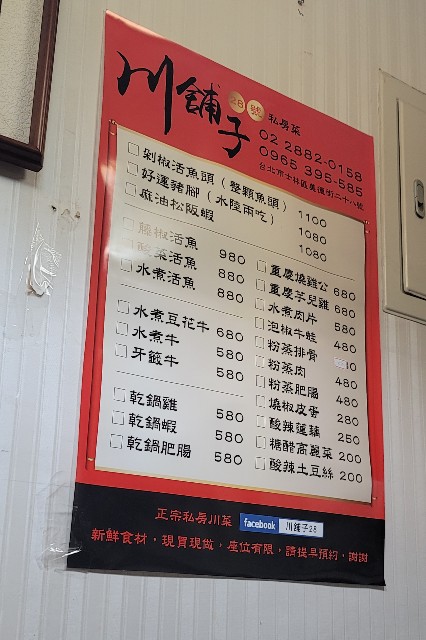 川鋪子
28號
私房菜
02 2882-0158
0965 395-585
台北市士林區美 街二十八號
剁椒活魚頭（整顆魚頭） 1100
好運豬腳（水陸兩吃） 1080
麻油松阪蝦 1080
藤椒活魚 980
酸菜活魚 880
水煮活魚 880
水煮豆花牛 680
水煮牛 580
牙籤牛 580
乾鍋雞 580
乾鍋蝦 580
乾鍋肥腸 580
重慶燒雞公 680
重慶芋兒雞 680
水煮肉片 580
泡椒牛蛙 480
粉蒸排骨
粉蒸肉 480
粉蒸肥腸 480
燒椒皮蛋 280
酸辣蓮藕 250
糖醋高麗菜 200
酸辣土豆絲 200
正宗私房川菜 facebook 川鋪子28
新鮮食材，現買現做，座位有限，請提早預約，謝謝